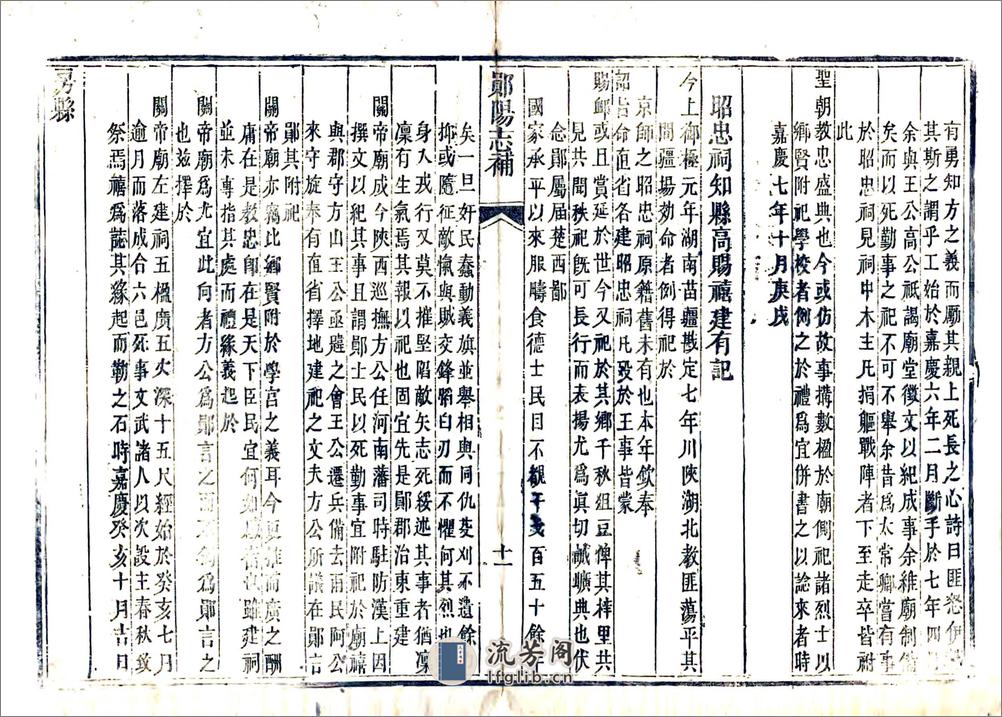 有勇知方之義而厲其親上死長之心詩曰匪怒伊
其斯之謂乎工始於嘉慶六年二月斷手於七年四
余與王公高公祇謁廟堂徵文以紀成事余維廟制
矣而以死勤事之祀不可不舉余昔為太常卿當有事
於昭忠祠見祠中木主凡捐軀戰陣者下至走卒皆祔
此
聖朝教忠盛典也今或仿故事搆數楹於廟側祀諸烈士以
鄉賢附祀學校者例之於禮為宜併書之以諗來者時
嘉慶七年十月庚戌
昭忠祠知縣高賜禧建有記
今上御極元年湖南苗疆戡定七年川陝湖北教匪蕩平其
間疆場効命者例得祀於
京師之昭忠祠原籍舊未有也本年欽奉
詔旨命直省各建昭忠祠凡歿於王事皆蒙
賜卹或且賞延於世今又祀於其鄉千秋俎豆俾其梓里共
見共聞秩祀既可長行而表揚尤為真切誠曠典也伏
念鄖屬届楚西鄙
國家承平以來服疇食德士民目不覩干戈百五十餘年
鄖陽志補
十一
矣一旦奸民蠢動義旗並舉相與同仇芟刈不遺餘
抑或隨征敵愾與賊交鋒蹈白刃而不懼何其烈也
身入戎行又莫不摧堅陷敵矢志死綏述其事者猶凜
凜有生氣焉其報以祀也固宜先是鄖郡治東重建
關帝廟成今陝西巡撫方公任河南藩司時駐防漢上因
撰文以紀其事且謂鄖士民以死勤事宜附祀於廟禧
與郡守方山王公亟趨之會王公遷兵備去雨民阿公
來守旋奉有直省擇地建祀之文夫方公所議在鄖言
鄖其附祀
關帝廟亦竊比鄉賢附於學宮之義耳今更推而廣之酬
庸在是教忠即在是天下臣民宜何如感奮也雖建祠
並未專指其處而禮緣義起於
關帝廟為尤宜此向者方公為鄖言之而不徒為鄖言之
也兹擇於
關帝廟左建祠五楹廣五丈深十五尺經始於癸亥七月
逾月而落成合六邑死事文武諸人以次設主春秋致
祭焉禧為誌其緣起而勒之石時嘉慶癸亥十月吉日
房縣
流芳阁
lfglib.cn